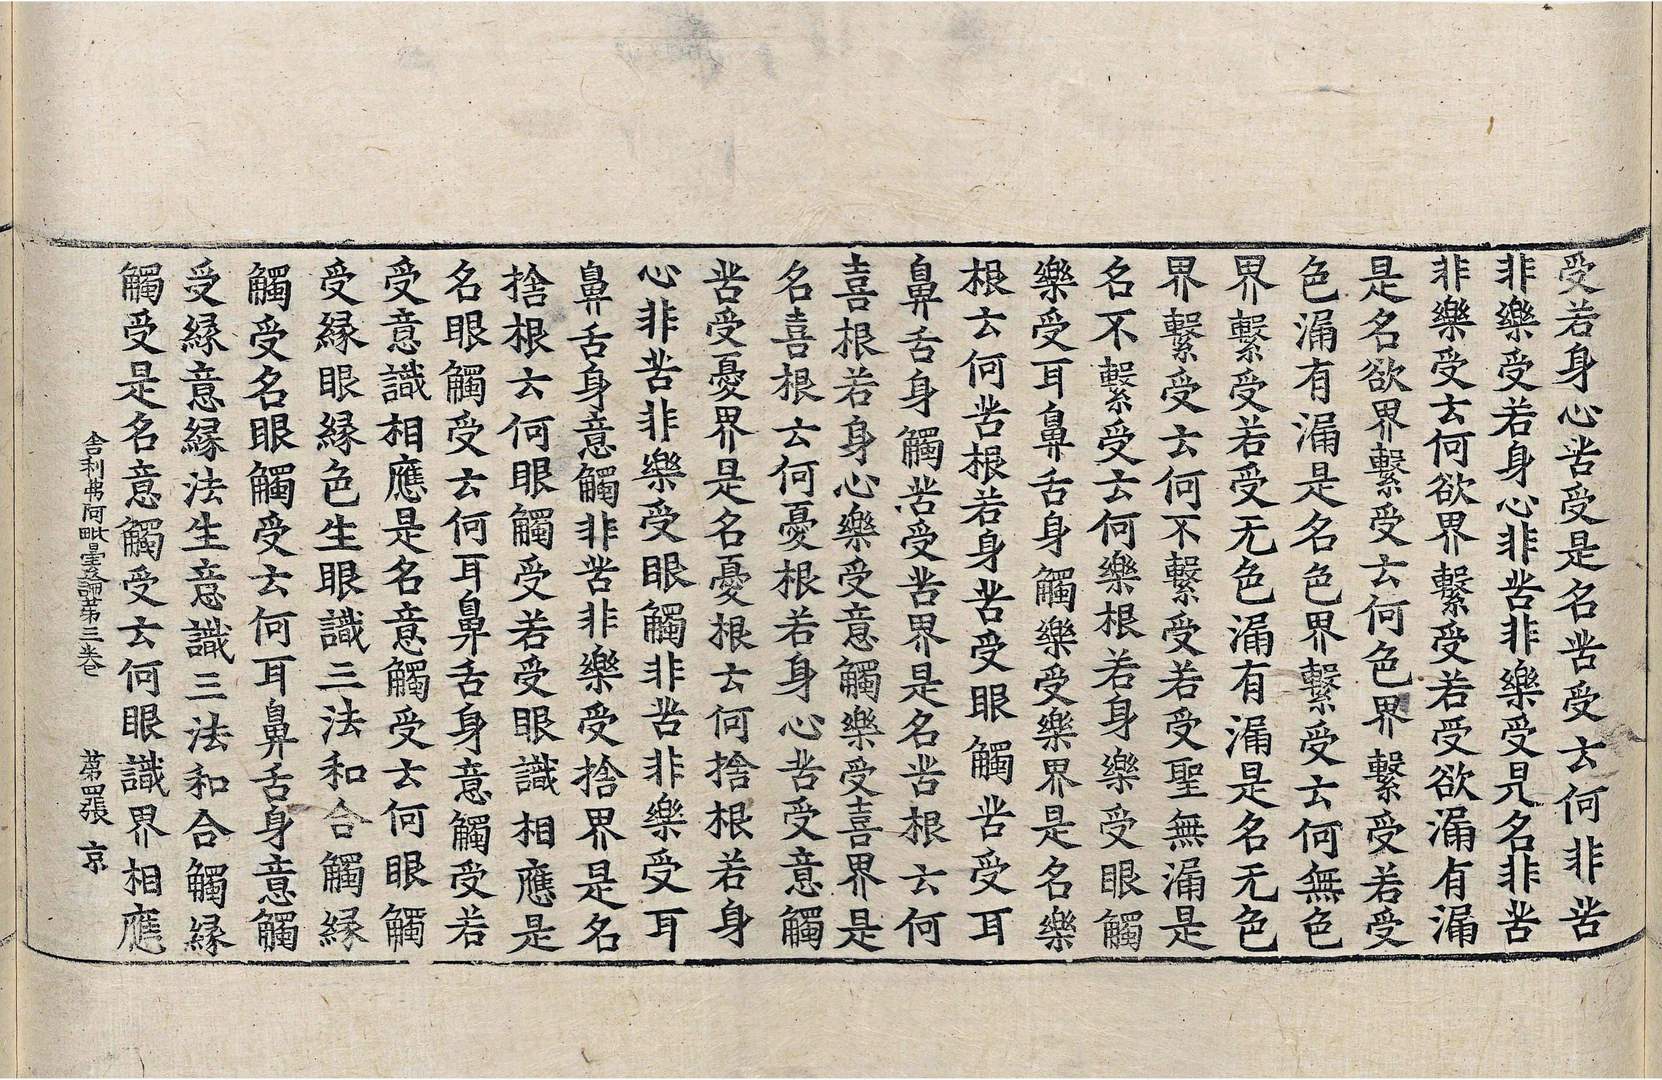 受若身心苦受是名苦受云何非苦
非樂受若身心非苦非樂受是名非苦
非樂受云何欲界繫受若受欲漏有漏
是名欲界繫受云何色界繫受若受
色漏有漏是名色界繫受云何無色
界繫受若受无色漏有漏是名无色
界繫受云何不繫受若受聖無漏是
名不繫受云何樂根若身樂受眼觸
樂受耳鼻舌身觸樂受樂界是名樂
根云何苦根若身苦受眼觸苦受耳
鼻舌身觸苦受苦界是名苦根云何
喜根若身心樂受意觸樂受喜界是
名喜根云何憂根若身心苦受意觸
苦受憂界是名憂根云何捨根若身
心非苦非樂受眼觸非苦非樂受耳
鼻舌身意觸非苦非樂受捨界是名
捨根云何眼觸受若受眼識相應是
名眼觸受云何耳鼻舌身意觸受若
受意識相應是名意觸受云何眼觸
受緣眼緣色生眼識三法和合觸緣
觸受名眼觸受云何耳鼻舌身意觸
受緣意緣法生意識三法和合觸緣
觸受是名意觸受云何眼識界相應
舍利弗阿毗曇論第三卷 第四張 京